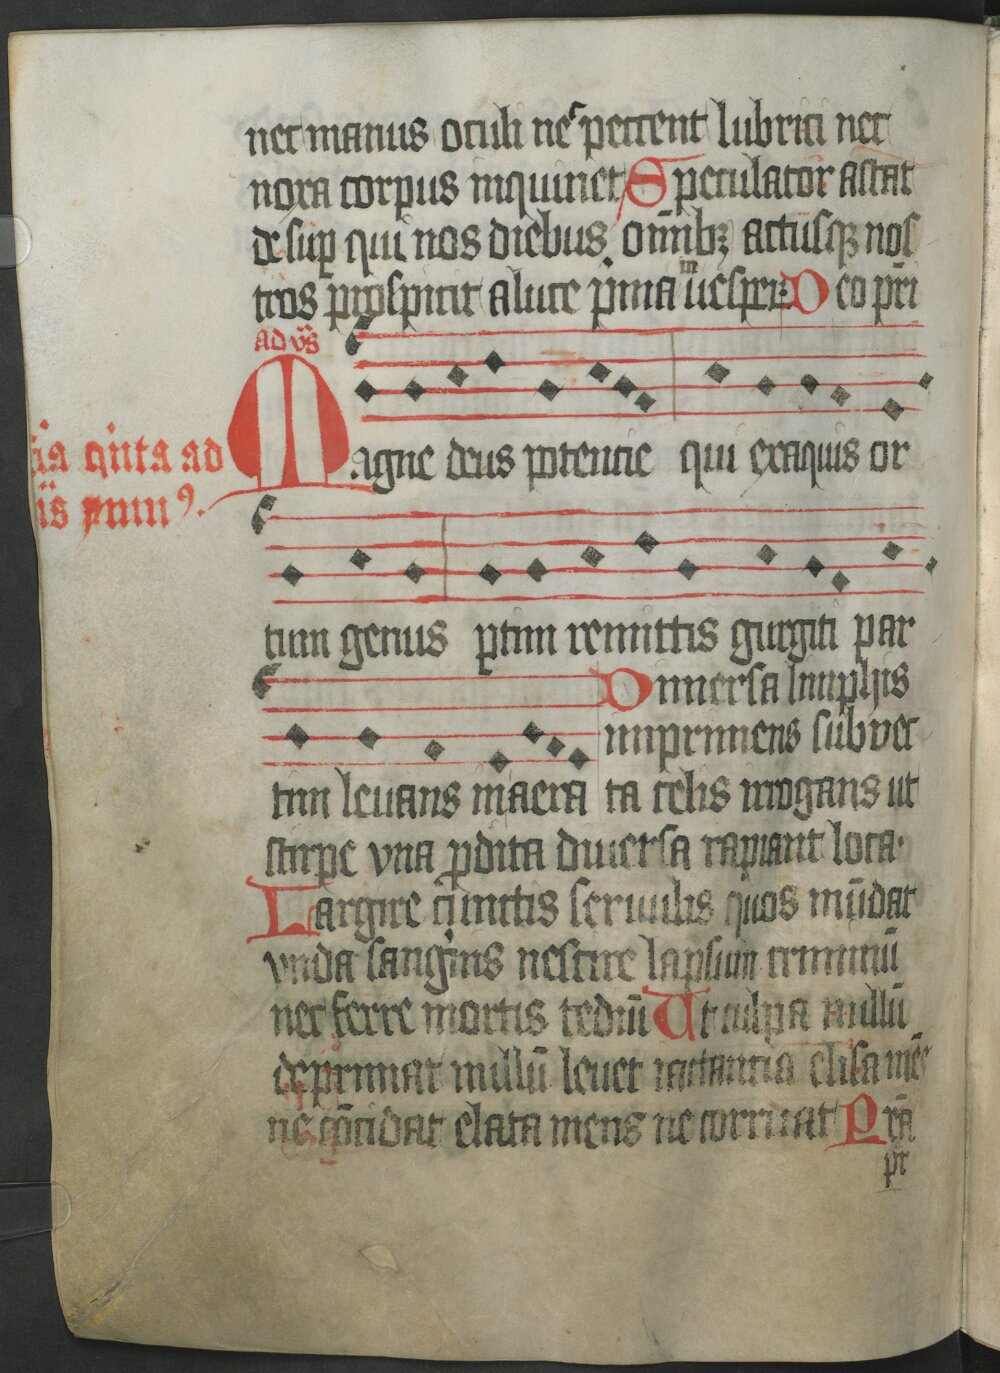 nec manus oculi ne peccent lubrici nec
noxa corpus inquinet Speculator astat
desup qui nos diebus omnibꝫ actusqꝫ nos
tros prospicit a luce prima in vesperꝫ Deo pri
ad vs
Magne deus potencie qui exaquis or
qinta ad
tum genus ptim remittis gurgiti par
Dimersa limphis
inprimens subvec
tim levans in aera ta celis irrogans ut
stirpe vna pdita diversa rapiant loca.
Largire cunctis servulis quos mūdat
vnda sanginis nescire lapsum criminū
nec ferre mortis tediū Ut culpa nullū
deprimat nullū levet iactantia elisa mēs
ne cōcidat elata mens ne corruat Pra
pr